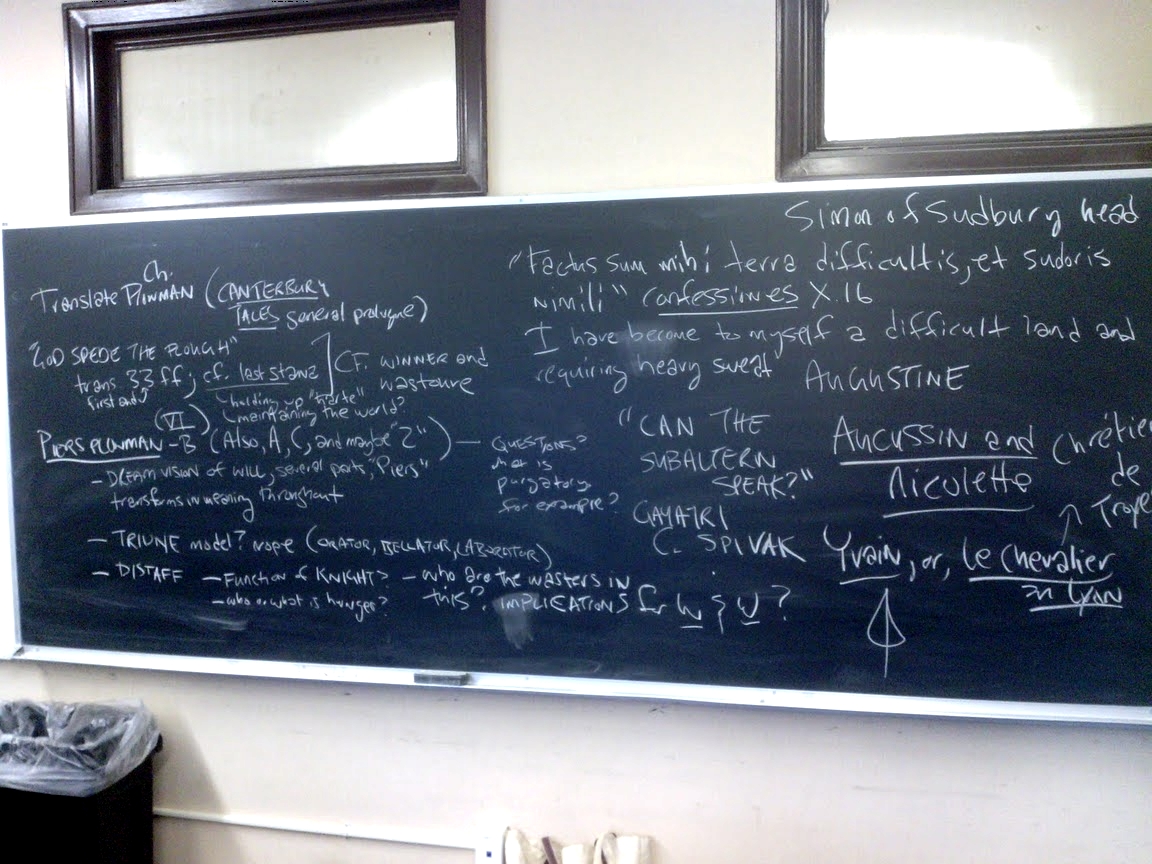 Ch.
Translate Plowman (CANTERBURY
TALES general prologue)
"GOD SPEDE THE PLOUGH"
trans 33 ff; cf. last stanza
first and
holding up "
maintaining the world?
CF. WINNER and
wastoure
(VI)
PIERS PLOWMAN - B (Also, A, C, and maybe "Z") —
- DREAM VISION of WILL, several parts, "Piers"
transforms in meaning throughout
QUESTIONS?
what is
purgatory
for example?
- TRIUNE model? nope (ORATOR, BELLATOR, LABORATOR)
- DISTAFF
- Function of KNIGHT?
- who or what is hunger?
- who are the wasters in
this? IMPLICATIONS for W & W?
Simon of Sudbury head
"Factus sum mihi terra difficultis, et sudoris
nimili" confessiones X.16
I have become to myself a difficult land and
requiring heavy sweat AUGUSTINE
"CAN THE
SUBALTERN
SPEAK?"
GAYATRI
C. SPIVAK
AUCUSSIN and
Nicolette
Chrétien
de
Troye
Yvain, or, Le Chevalier
au Lyon